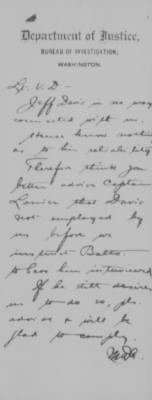 Department of Justice,
BUREAU OF INVESTIGATION,
WASHINGTON.
Lt. V. D -
Jeff Davis is no way
connected with us.
Hence know nothing
as to his reliability
Therefore think you
better advise Captain
that Davis
not employed by
us before we
instruct Balto.
to have him interviewed
If he still desires
us to do so, pls.
advise & will be
glad to comply.